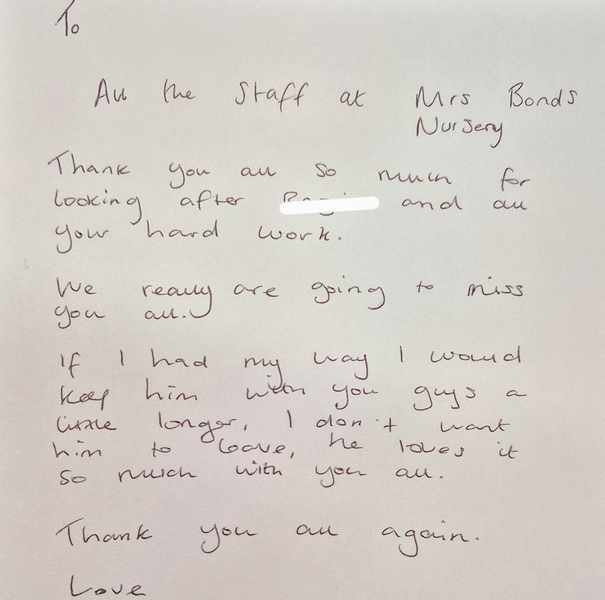 To
All the Staff at Mrs Bonds
Nursery
Thank you all so much for
looking after and all
your hard work.
We really are going to miss
you all.
If I had my way I would
keep him with you guys a
little longer, I don't want
him to leave, he loves it
so much with you all.
Thank you all again.
Love